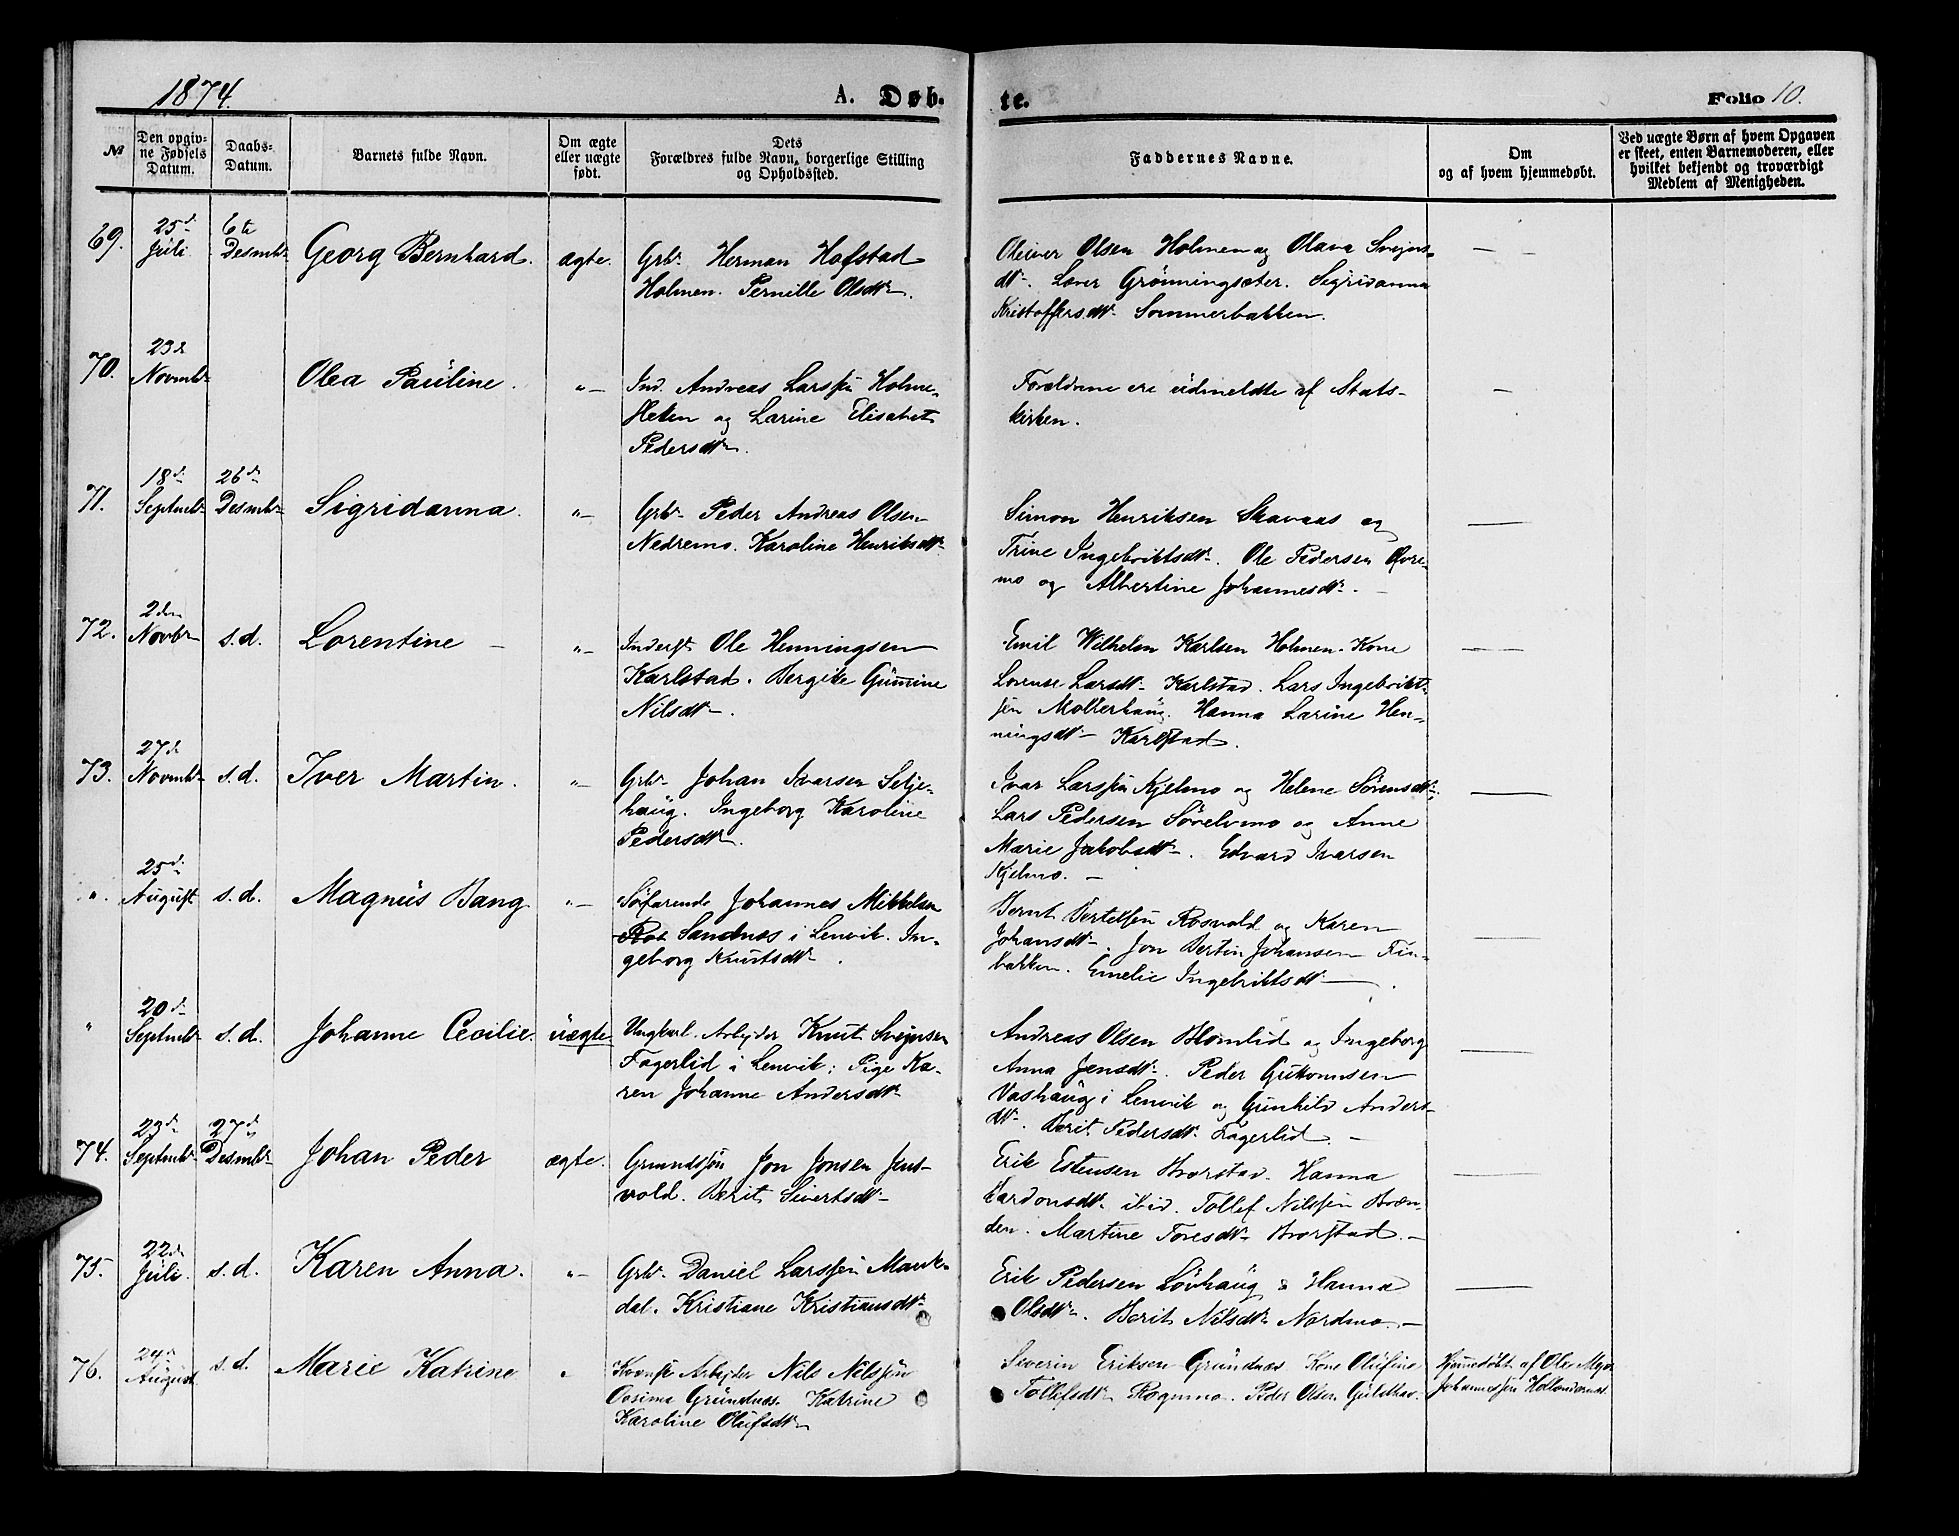 1874.
A. Døb-
te.
Folio 10.
№
Den opgiv-
ne Fødsels
Datum.
Daabs-
Datum.
Barnets fulde Navn.
Om ægte
eller uægte
født.
Dets
Forældres fulde Navn, borgerlige Stilling
og Opholdssted.
Faddernes Navne.
Om
og af hvem hjemmedøbt.
Ved uægte Børn af hvem Opgaven
er skeet, enten Barnemoderen, eller
hvilket bekjendt og troværdigt
Medlem af Menigheden.
69.
25d
Juli
6te
Desmbr
Georg Bernhard.
ægte.
Grbr. Herman Hafstad
Holmen. Pernille Olsdtr.
Oliver Olsen Holmen og Olava Svejns-
dtr. Lover Grønningsæter. Sigridanna
Kristoffersdtr. Sommerbakken.
— -
70.
23d
Novmbr
Olea Pauline.
"—
Ind. Andreas Larssen Holme-
Heken og Larine Elisabet
Pedersdtr.
Forældrene ere udmeldte af Stats-
kirken.
—
71.
18d
Septmbr
26d
Desmbr
Sigridanna.
"—
Grbr. Peder Andreas Olsen
Nedremo. Karoline Henriksdtr.
Simon Henriksen Skavaas og
Trine Ingebriktsdtr. Ole Pedersen Øvre-
mo og Albertine Johannesdtr. —
—
72.
2den
Novbr
s.d.
Lorentine —
"—
Inderst Ole Henningsen
Karlstad. Bergitte Gurine
Nilsdtr.
Emil Wilhelm Karlsen Holmen. Kone
Lovense Larsdtr. Karlstad. Lars Ingebrikt-
sen Mollerhaug. Hanna Larine Hen-
ningsdtr. Karlstad.
—
73.
27d
Novmbr
s.d.
Iver Martin.
"—
Grbr. Johan Ivarsen Selje-
haug. Ingeborg Karoline
Pedersdtr.
Ivar Larssen Kjelmo og Helene Sørensdtr.
Lars Pedersen Sørelvmo og Anne
Marie Jakobsdtr. Edvard Ivarsen
Kjelmo. —
—
".
25d
August
s.d.
Magnus Bang
"—
Søfarende Johannes Mikkelsen
Sandnes i Lenvik. In-
geborg Knutsdtr.
Bernt Bertelsen Rosvold og Karen
Johansdtr. Jon Bertin Johansen Fin-
bakken. Emelie Ingebriktsdtr. —
—
"
20d
Septmbr
s.d.
Johanne Cecilie.
uægte
Ungkarl. Arbejder Knut Svejnsen
Fagerlid i Lenvik; Pige Ka-
ren Johanne Andersdtr.
Andreas Olsen Blomlid og Ingeborg
Anna Jensdtr. Peder Guttormsen
Vashaug i Lenvik og Gunhild Anders-
dtr. Berit Pedersdtr. Fagerlid. —
—
74.
23d
Septmbr
27d
Desmbr
Johan Peder
ægte.
Grundssøn Jon Jonsen Jens-
vold. Berit Sivertsdtr.
Erik Estensen Bvorstad. Hanna
Hardonsdtr. ibid. Tollef Nilssen Bræn-
den. Martine Toresdtr. Bvorstad. —
—
75.
22d
Juli.
s.d.
Karen Anna.
"—
Grbr. Daniel Larssen Mauk-
dal. Kristiane Kristiansdtr.
Erik Pedersen Løvhaug & Hanna
Olsdtr. Berit Nilsdtr. Nordmo. —
—
76.
24d
August
s.d.
s
Marie Katrine
"
Arbejder Nils Nilssen
Grundnes. Katrine
Karoline Olufsdtr.
Severin Eriksen Grundnes Kone Olufine
Tollefsdtr. Rognmo. Peder Olsen
Hjemmedøbt af Ole Mya
Johannessen